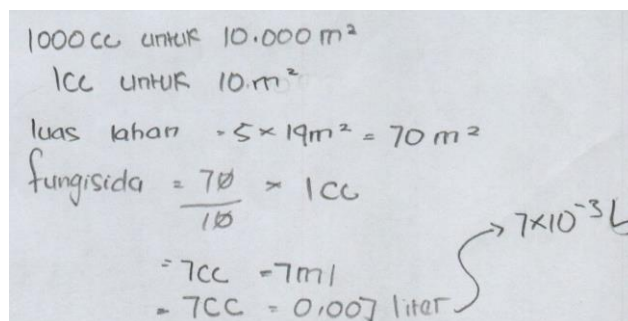 1000 cc untuk 10.000 m²
1cc untuk 10.m²
luas lahan = 5 × 19m² = 70 m²
fungisida = 70/10 × 1 cc
= 7cc = 7ml
= 7cc = 0,007 liter → 7×10⁻³ L